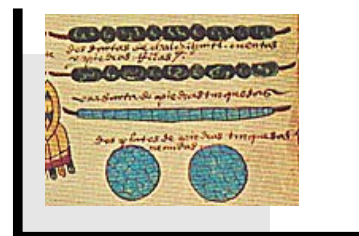 dos sartas de chalchihuitl. cuentas
o piedras ricas /.
una sarta de piedras turquesas
dos platos de piedras turquesas
menudas